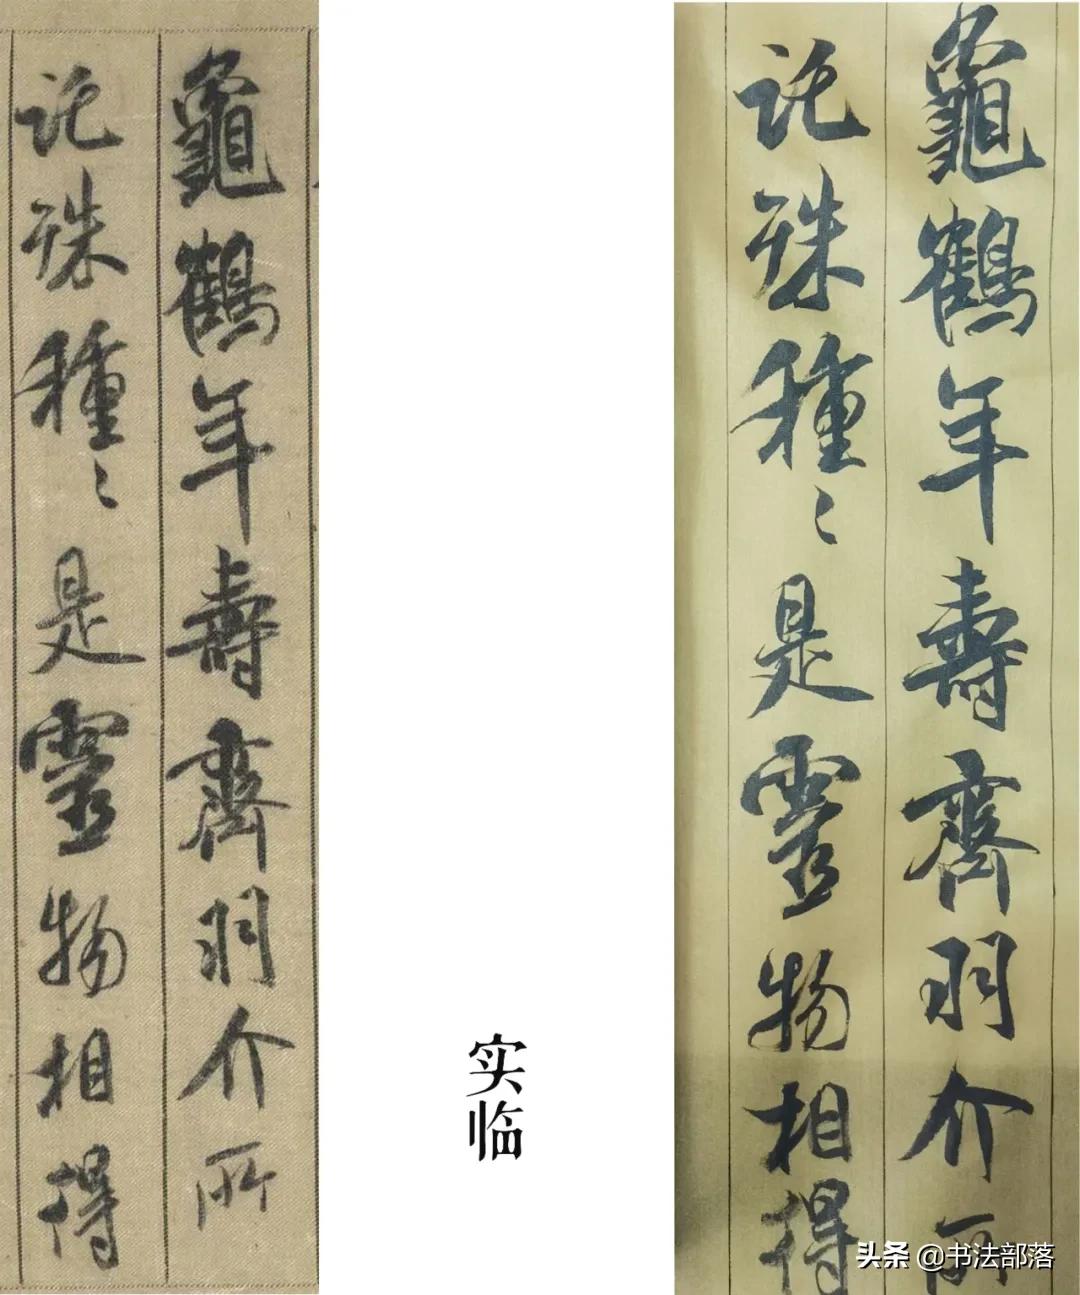 龜鶴年壽齊羽介所
託殊種〻是靈物相得
实临
龜鶴年壽齊羽介所
託殊種〻是靈物相得
头条 @书法部落